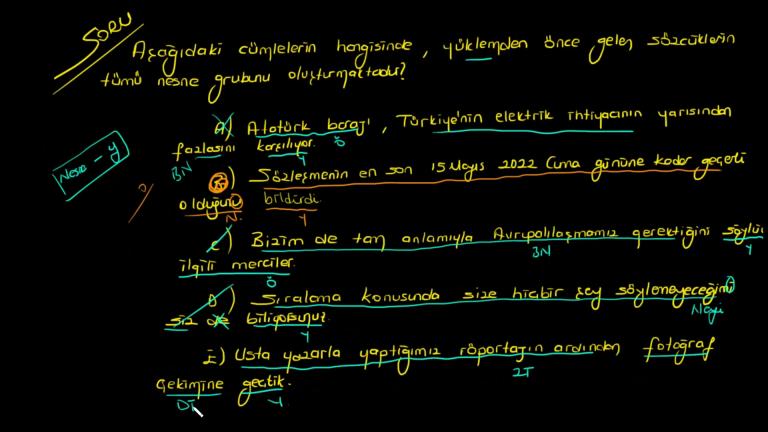 SORU
Aşağıdaki cümlelerin hangisinde, yüklemden önce gelen sözcüklerin
tümü nesne grubunu oluşturmaktadır?
A) Atatürk barajı, Türkiye'nin elektrik ihtiyacının yarısından
Ö
fazlasını karşılıyor.
BN Y
Nesne - y
B) Sözleşmenin en son 15 Mayıs 2022 Cuma gününe kadar geçerli
olduğunu bildirdi.
N. Y
C) Bizim de tam anlamıyla Avrupalılaşmamız gerektiğini söylüyor
BN Y
ilgili merciler.
Ö
D) Sıralama konusunda size hiçbir şey söylemeyeceğimi
siz de biliyorsunuz.
Y
E) Usta yazarla yaptığımız röportajın ardından fotoğraf
ZT
çekimine geçtik.
DT Y